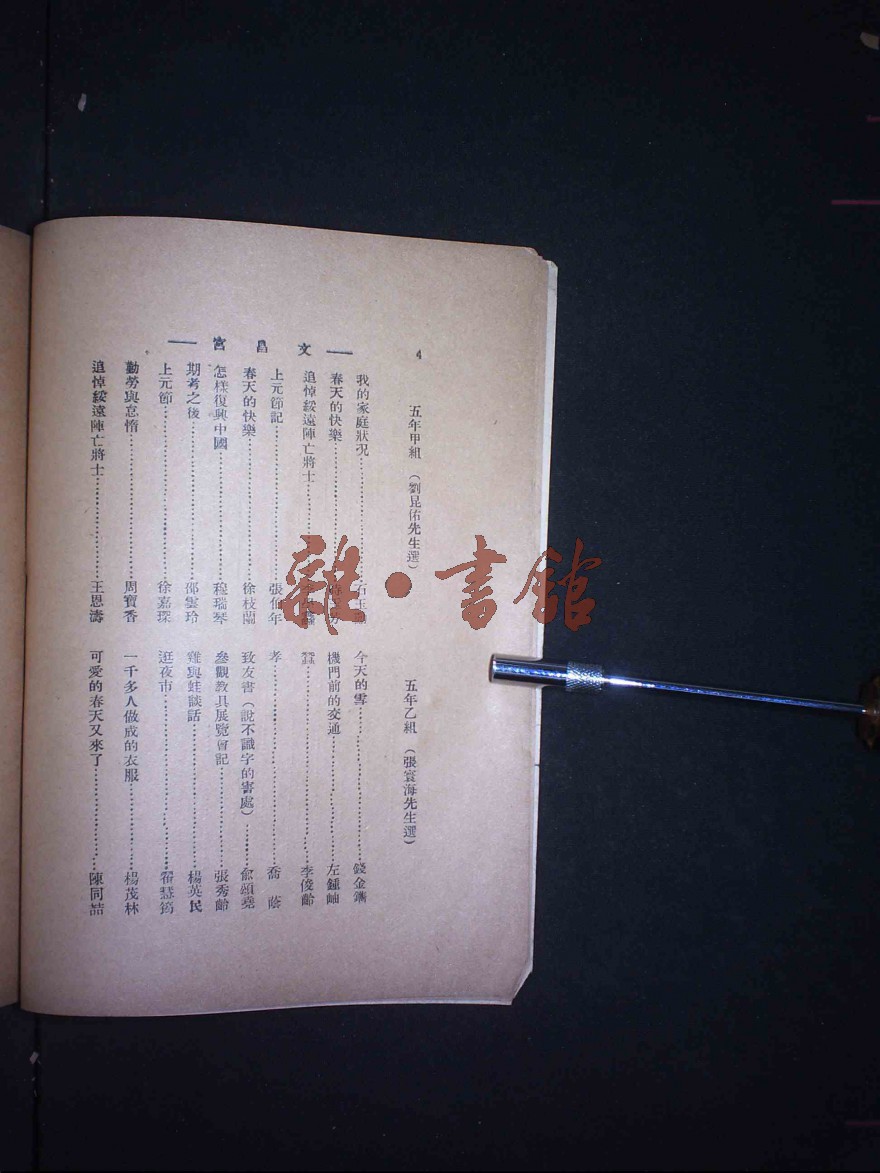 4
— 文昌宮 —
五年甲組 （劉昆佑先生選）
我的家庭狀況……石玉
春天的快樂……
追悼綏遠陣亡將士……
上元節記……張伯年
春天的快樂……徐枝蘭
怎樣復興中國……程瑞琴
期考之後……邵雲玲
上元節……徐嘉琛
勤勞與怠惰……周寶香
追悼綏遠陣亡將士……王恩濤
五年乙組 （張寰海先生選）
今天的雪……錢金鑴
機門前的交通……左鍾岫
蠶……李俊齡
孝……喬 蔭
致友書（說不識字的害處）……俞頌堯
參觀教具展覽會記……張秀齡
雞與蛙談話……楊英民
逛夜市……翟慧筠
一千多人做成的衣服……楊茂林
可愛的春天又來了……陳同喆
雜·書館